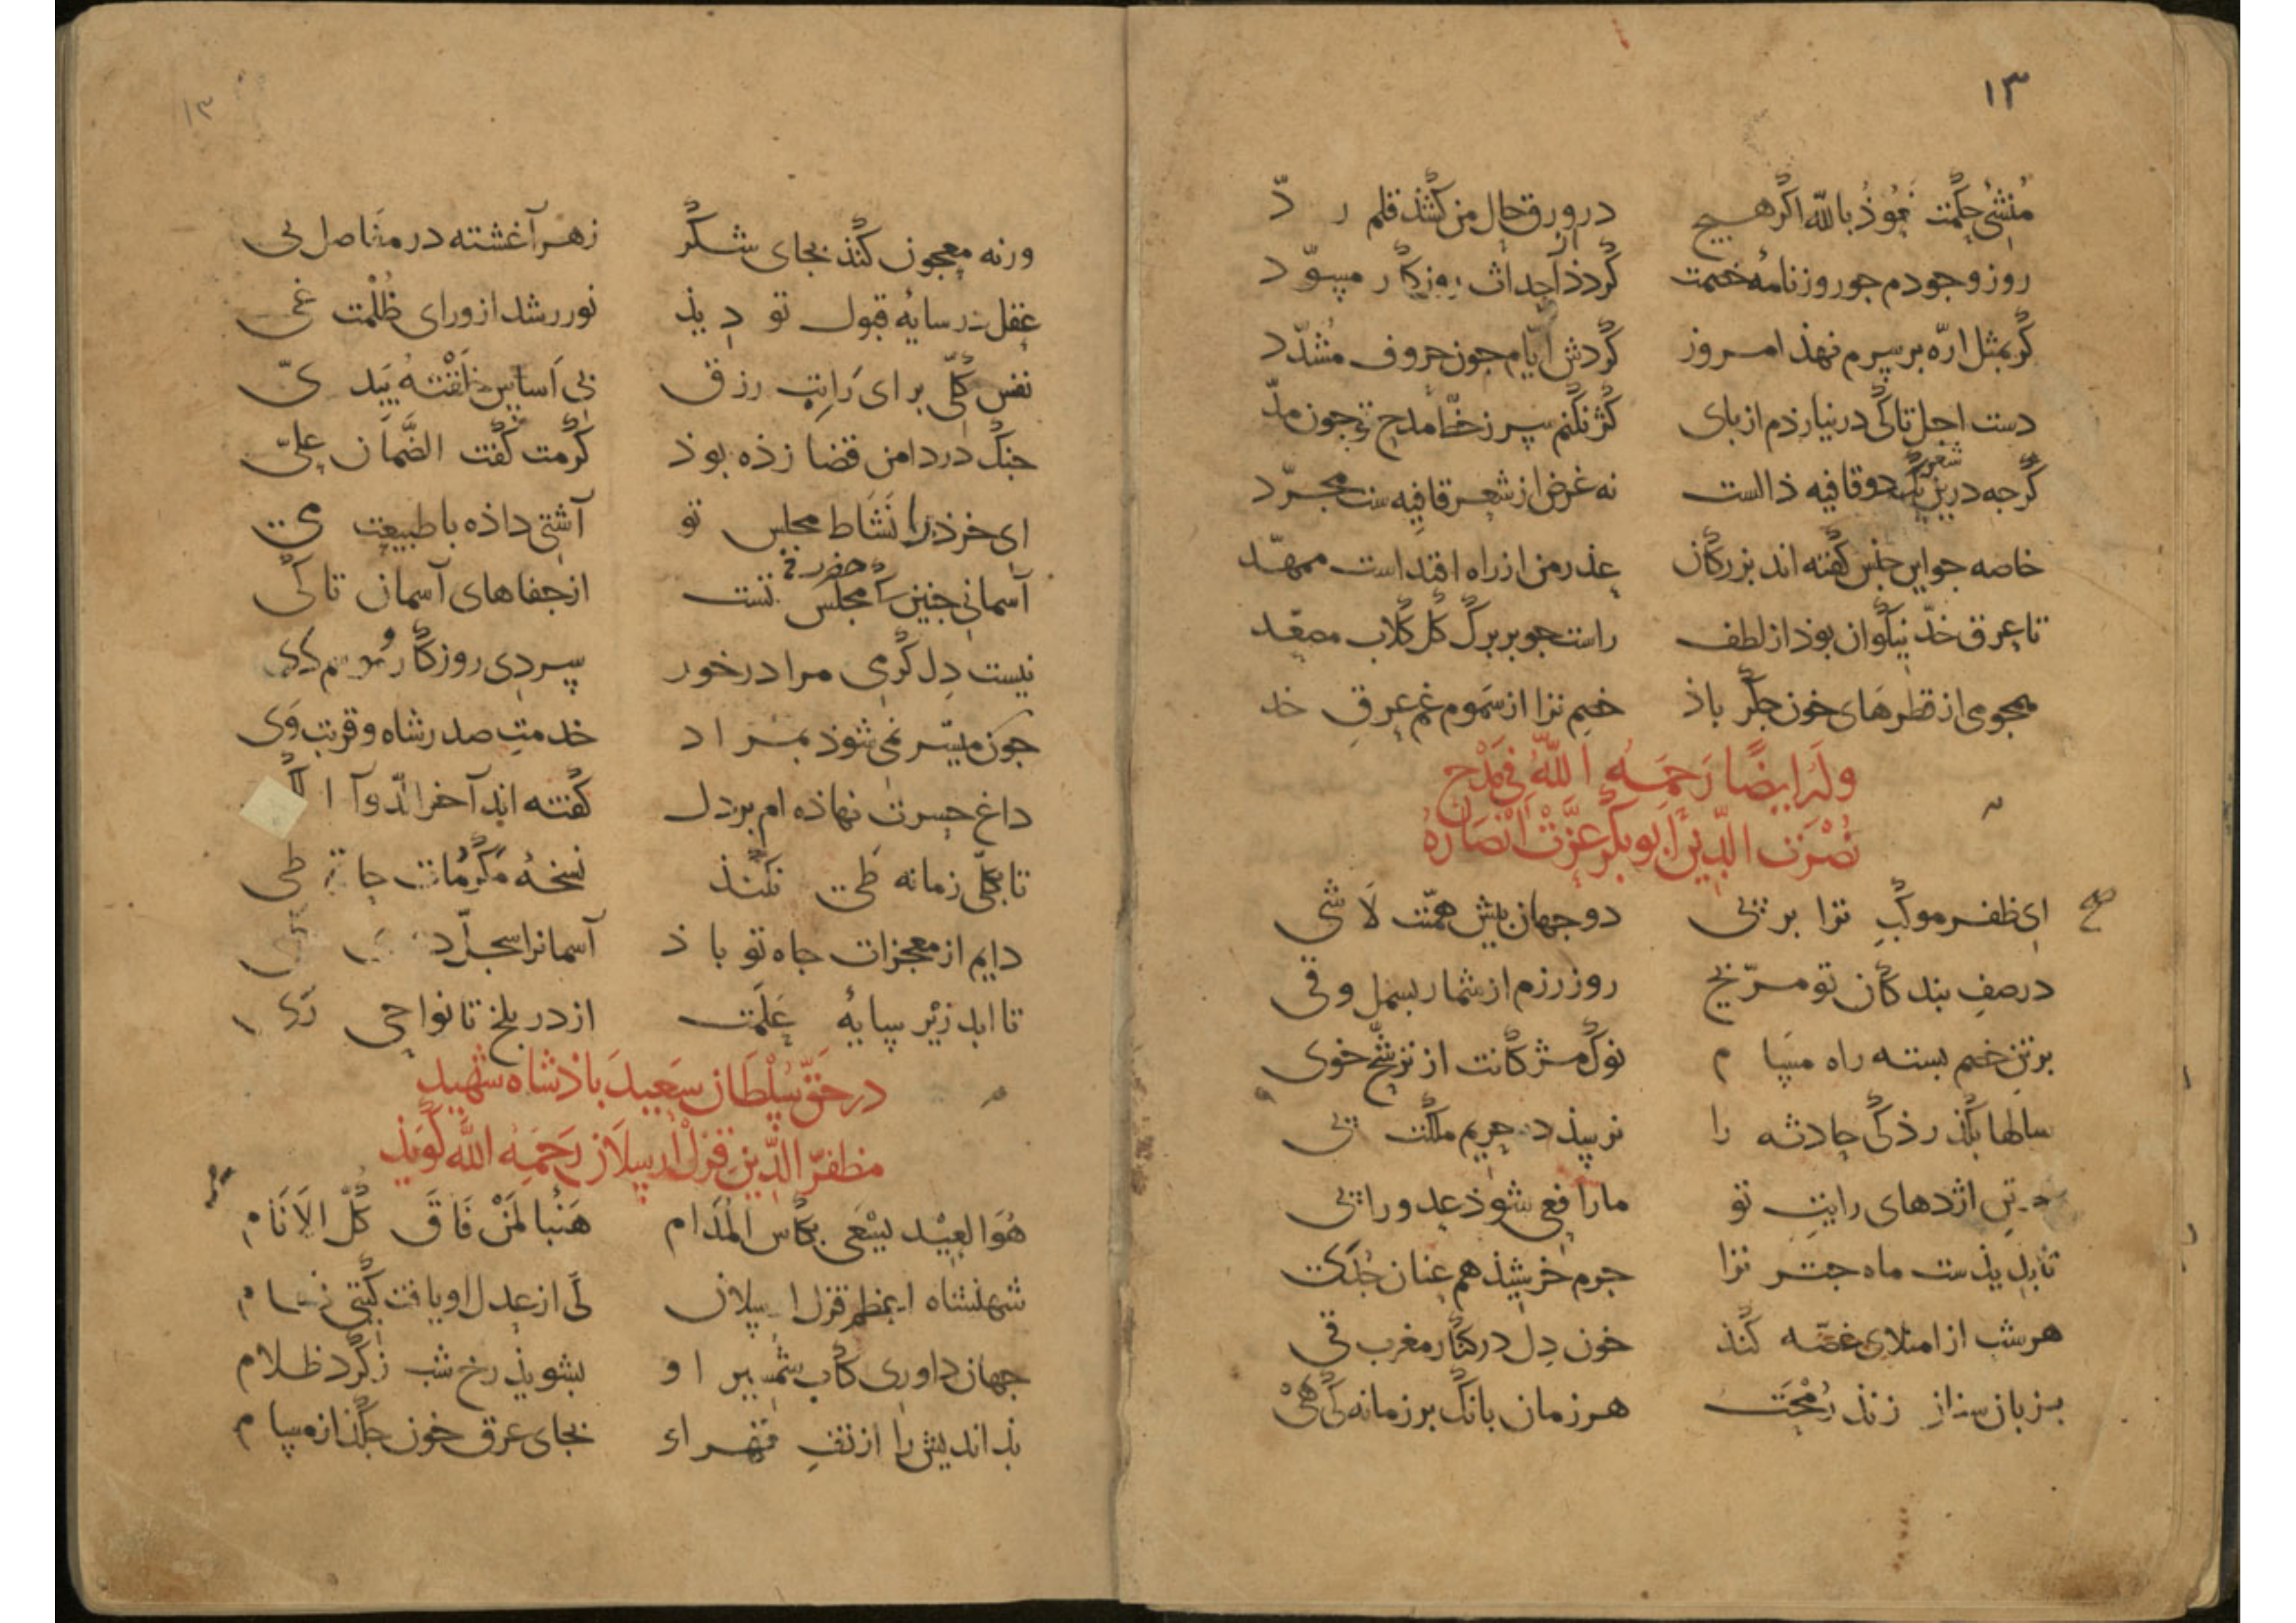 ۱۳
منشیٔ حکمت نعوذ بالله اگر هیچ در ورق حال من کشذ قلم رد
روز وجودم جو روزنامهٔ خصمت گردذ از احداث روزگار مسوّد
گر بمثل ارّه بر سرم نهذ امروز گردش ایّام جون حروف مشدّد
دست اجل تا کی در نیارذم از بای کژ نکنم سر ز خطّ مدح تو جون مدّ
گرجه درین یک دو قافیه ذالست نه غرض از شعر قافیه ست مجرّد
شعر
خاصه جو این جنس گفته اند بزرگان عذر من از راه اقتداست ممهّد
تا عرق خدّ نیکوان بوذ از لطف راست جو بر برگ گل گلاب مصعّد
همجومی از قطرهای خون جگر باذ خصم ترا از سموم غم عرق خد
وله ایضًا رحمه الله فی مدح
نصرت الدین ابوبکر عزّت انصاره
ای ظفر موکب ترا بر بی دو جهان بیش همّتت لاشی
در صف بندگان تو مرّیخ روز رزم از شمار بسمل و قی
بر تن خصم بسته راه مسام نوک مژگانت از ترشّح خوی
سالها بگذرذ کی حادثه را نرسذ در حریم ملکت بی
در تن اژدهای رایت تو مار افعی شوذ عدو را بی
تا بدیذست ماه جتر ترا جرم خرشیذ هم عنان جُدَی
هر شب از امتلای غصّه کنذ خون دل در کنار مغرب قی
بزبان سنان زنذ رُمحت هر زمان بانگ بر زمانه کی هَی
۱۳
ورنه معجون کنذ بجای شکر زهر آغشته در مفاصل نی
عقل در سایهٔ قبول تو دیذ نور رشد از ورای ظلمت غی
نفس کلّی برای راتب رزق بی اساس
جنگ در دامن قضا زذه بوذ کرمت گفت الضّمان علیّ
ای خرذ را نشاط مجلس تو آشتی داذه با طبیعت می
حضرت
آسمانی جنین که مجلس تست از جفاهای آسمان تا کی
نیست دل گرمی مرا در خور سردی روزگار دی
جون میسّر نمی شوذ بمراد خدمت صدر شاه و قربت وی
داغ حسرت نهاذه ام بر دل گفته اند آخر الدّوآ الکی
تا بکلّی زمانه طی نکنذ نسخهٔ مکرمات حاتم طی
دایم از معجزات جاه تو باذ آسمانرا سجلّ
تا ابد زیر سایهٔ علمت از در بلخ تا نواحی ری
در حقّ سلطان سعید باذشاه شهید
مظفّر الدّین قزل ارسلان رحمه الله گویذ
هو العید یسعی بکاس المدام هنیا لمن فاق کلّ الانام
شهنشاه اعظم قزل ارسلان کی از عدل او یافت گیتی نظام
جهان داوری کاب شمشیر او بشویذ رخ شب ز گرد ظلام
بذاندیش را از تف قهر او بجای عرق خون جکذ از مسام